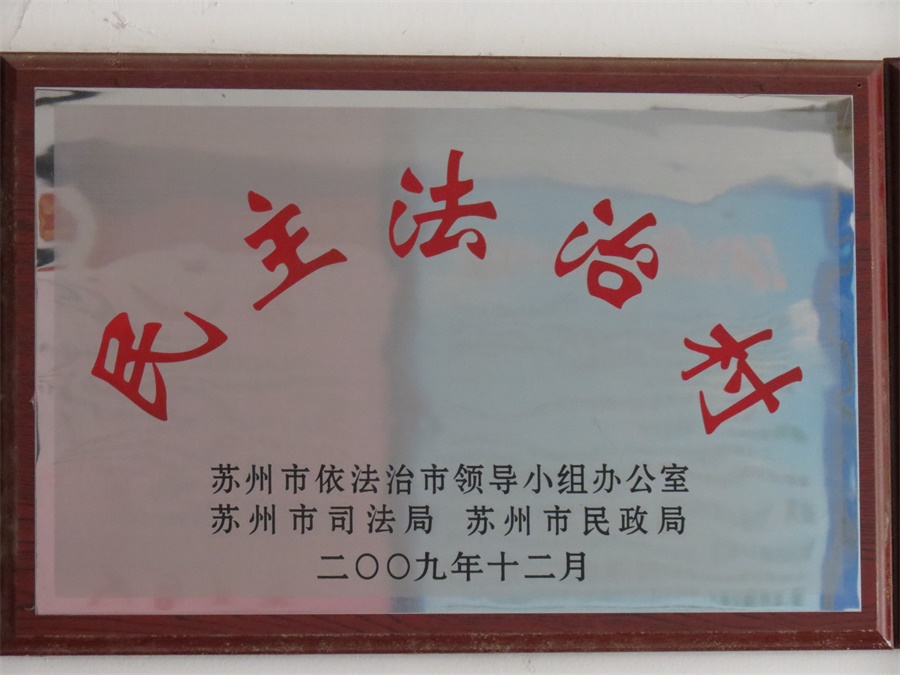 民主法治村
苏州市依法治市领导小组办公室
苏州市司法局 苏州市民政局
二〇〇九年十二月